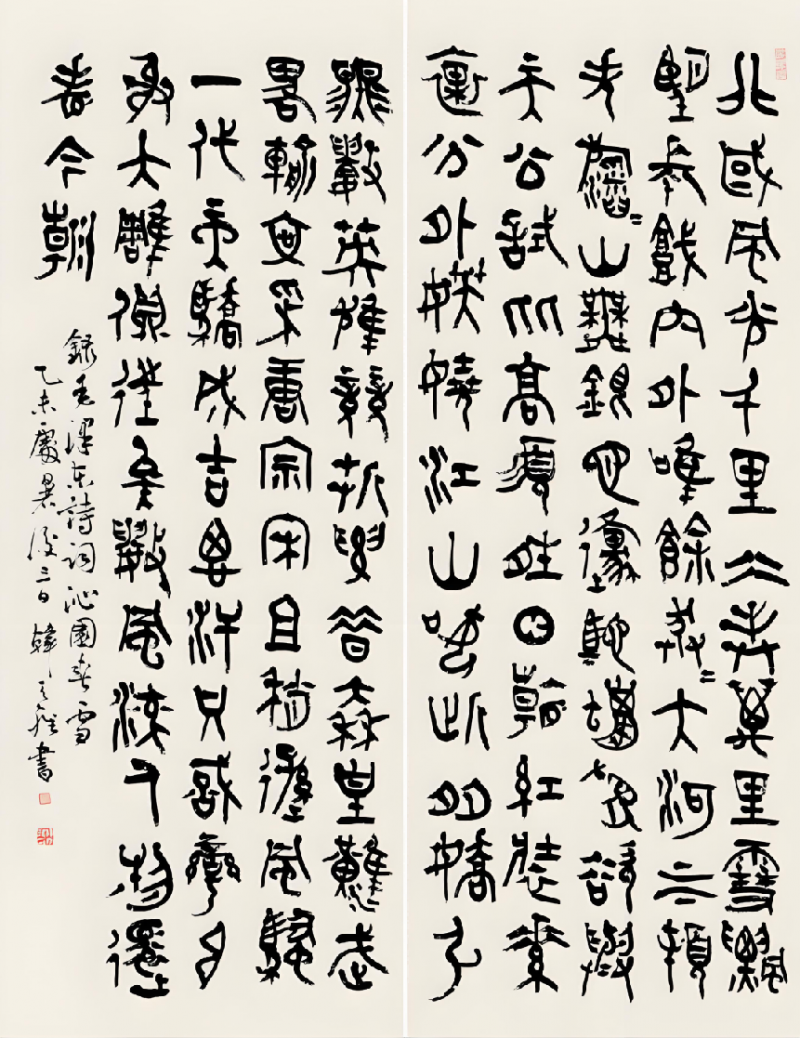 北國風光千里冰封萬里雪飄
望長城內外唯餘莽=大河上下頓
失滔=山舞銀蛇原馳蠟象欲與
天公試比高須晴日看紅裝素
裹分外妖嬈江山如此多嬌引
無數英雄競折腰昔秦皇漢武
略輸文采唐宗宋祖稍遜風騷
一代天驕成吉思汗只識彎弓
射大雕俱往矣數風流人物還
看今朝
錄毛澤東詩詞沁園春雪
乙未處暑後三日韓天雍書